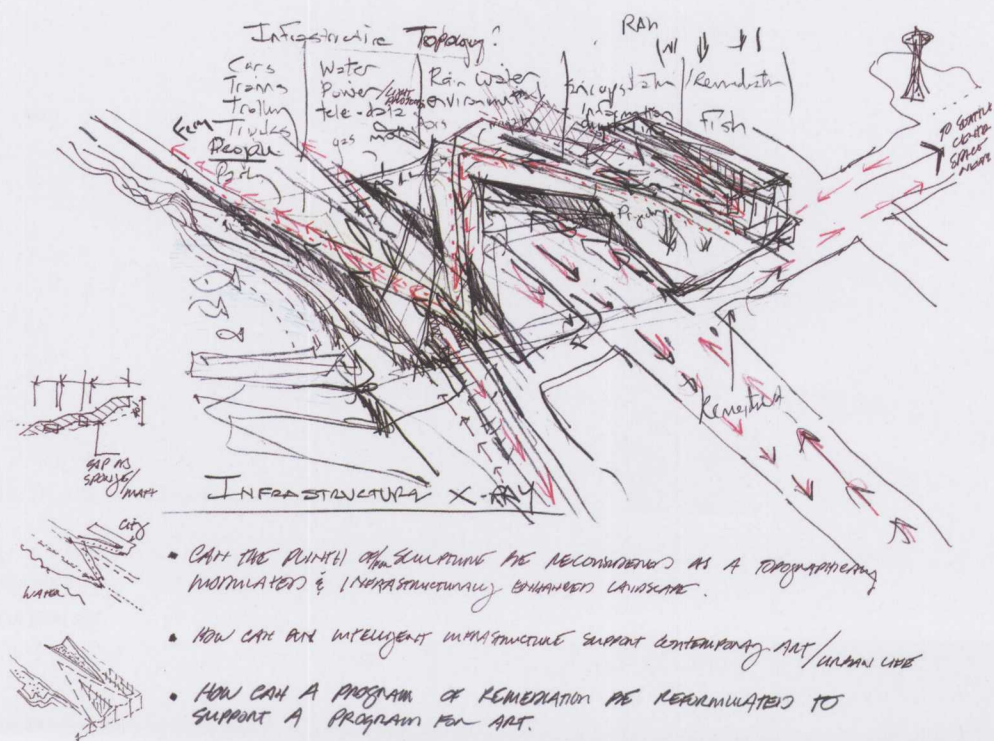 Infrastructure Topology?
RAIN
Cars
Trains
Trolley
Trucks
People
Water
Power/
tele-data
gas
Rain water
environmental
monitors
information
Remediation
Fish
TO SEATTLE
CENTER
SPACE
NEEDLE
GAP AS
SPONGE/
MAT
INFRASTRUCTURAL X-RAY
City
WATER
• CAN THE PLINTH OF SCULPTURE BE RECONSIDERED AS A TOPOGRAPHICALLY
MODULATED & INFRASTRUCTURALLY ENHANCED LANDSCAPE.
• HOW CAN AN INTELLIGENT INFRASTRUCTURE SUPPORT CONTEMPORARY ART/URBAN LIFE
• HOW CAN A PROGRAM OF REMEDIATION BE REFORMULATED TO
SUPPORT A PROGRAM FOR ART.